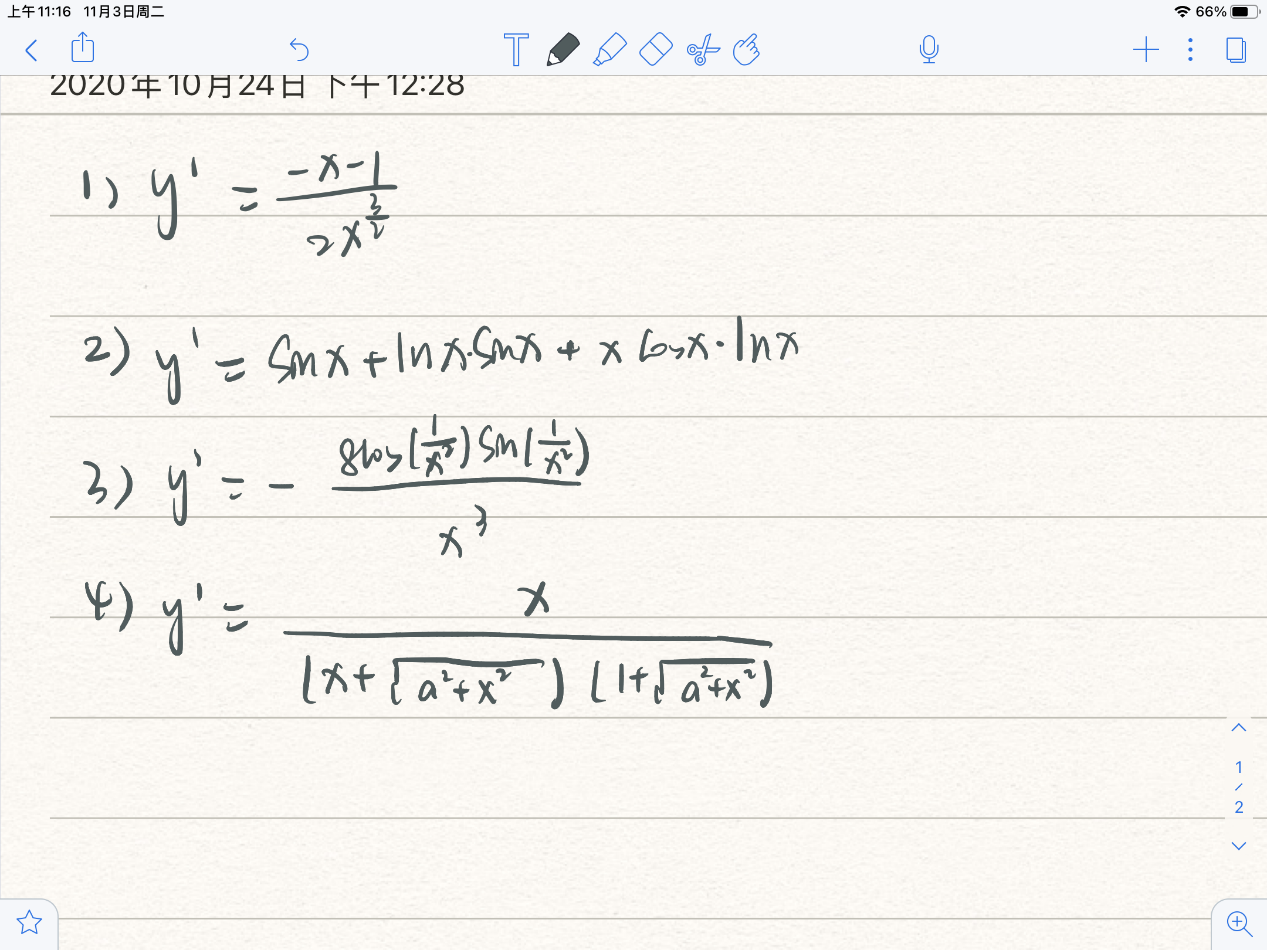 上午11:16 11月3日周二
66%
2020年10月24日 下午12:28
1) y' = \frac{-x-1}{2x^{\frac{3}{2}}}
2) y' = sinx + lnx·sinx + x cosx·lnx
3) y' = - \frac{8cos(\frac{1}{x^2}) sin(\frac{1}{x^2})}{x^3}
4) y' = \frac{x}{(x+\sqrt{a^2+x^2})(1+\sqrt{a^2+x^2})}
1
/
2